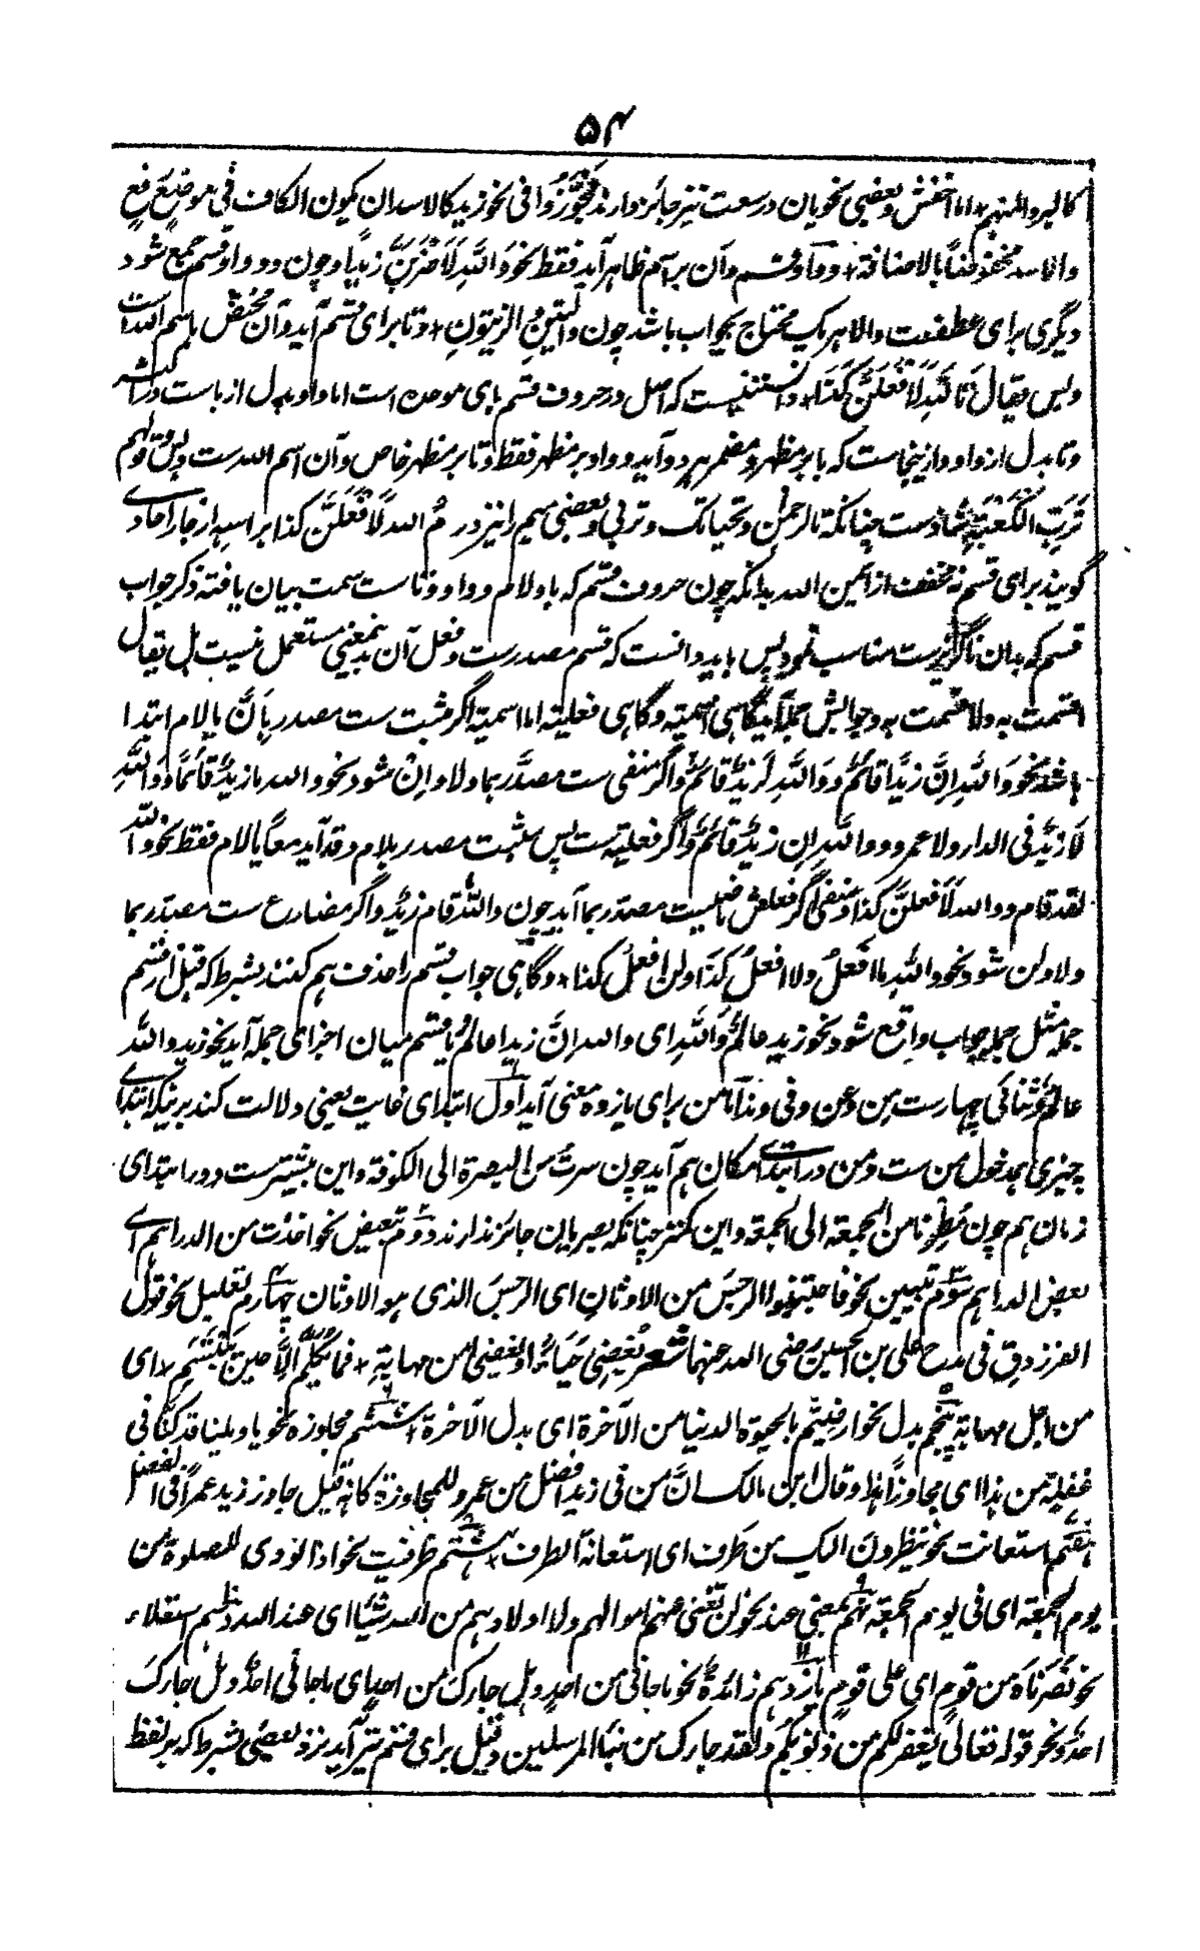 ۵۴
کالبرد المنهم ٭ اما اخفش و بعضی نحویان در سعت نیز جائز دارند فجوّزوا فی نحو زید کالاسد ان یکون الکاف فی موضع رفع
والاسد مخفوضاً بالاضافة ٭ و واو قسم و آن بر اسم ظاهر آید فقط نحو و اللّهِ لَاَضْرِبَنَّ زیداً و چون دو واو قسم جمع شود
دیگری برای عطفست والا هر یک محتاج بجواب باشد چون والتینِ والزیتونِ ٭ و تا برای قسم آید و آن مختص باسم اللّه است
ولیس یقال تَالَّذِی لَاَفْعَلَنَّ کَذَا ٭ دانستنیست که اصل در حروف قسم بای موحده است اما واو بدل از باست
و تا بدل از واو و ازینجاست که با بر مظهر و مضمر هر دو آید و واو بر مظهر فقط و تا بر مظهر خاص و آن اسم اللّه ست و لیس قولهم
تَرَبِّ الْکَعْبَةِ شاذست چنانکه تالرحمٰن و تحیاتک و تربی و بعضی میم را نیز در مُ اللّه لَاَفْعَلَنَّ کذا براسه از جار احادی
گویند برای قسم نه مخفف از ایمن اللّه بدانکه چون حروف قسم که با و لام و واو و تا ست سمت بیان یافته ذکر جواب
قسم که بدان ناگزیرست مناسب نمود پس باید دانست که قسم مصدرست و فعل آن بدینمعنی مستعمل نیست بل یقال
اقسمت به ولا قسمت به و جوابش جمله آید گاهی اسمیة و گاهی فعلیة اما اسمیة اگر مثبت ست مصدر بِاَنَّ یا لام ابتدا
باشد نحو وَاللّهِ اِنَّ زیدًا قائمٌ و وَاللّهِ لَزیدٌ قائمٌ و اگر منفی ست مصدَّر بما و لا و اِنْ شود نحو واللّه ما زیدٌ قائمًا و واللّهِ
لَا زیدٌ فی الدار ولا عمرو و واللّهِ اِن زیدٌ قائمٌ و اگر فعلیة ست پس مثبت مصدر بلام و قد آید معاً یا لام فقط نحو واللّه
لقد قام و واللّه لَاَفعلنَّ کذا و منفی اگر فعلش ماضیست مصدّر بما آید چون واللّه ما قام زیدٌ و اگر مضارع ست مصدّر بما
ولا و لن شود نحو واللّه ما افعلُ ولا افعلُ کذا و لن افعل کذا ٭ و گاهی جواب قسم را حذف هم کنند بشرط که قبل از قسم
جملهٔ مثل جملهٔ جواب واقع شود نحو زید عالمٌ واللّهِ ای واللّه انَّ زیدا عالمٌ یا قسم میان اجزای جمله آید نحو زید واللّه
عالمٌ و ثنائی چهارست مِن و عن و فی و مذ اما من برای یازده معنی آید اول ابتدای غایت یعنی دلالت کند برینکه ابتدای
چیزی مدخول من ست و من در ابتدای مکان هم آید چون سرتُ من البصرة الی الکوفة و این بیشترست و در ابتدای
زمان هم چون مُطِرنا من الجمعة الی الجمعة و این کمتر چنانکه بصریان جائز ندارند دوم تبعیض نحو اخذت من الدراهم ای
بعض الدراهم سوم تبیین نحو فاجتنبوا الرجسَ من الاوثان ای الرجسَ الذی هو الاوثان چهارم تعلیل نحو قول
الفرزدق فی مدح علی بن الحسین رضی اللّه عنهما شعر یُغضِی حَیَاءً و یُغضیٰ من مهابتِهِ ٭ فما یُکلَّمُ اِلّا حین یَبْتَسِمِ ٭ ای
من اجل مهابته پنجم بدل نحو ارضیتم بالحیوة الدنیا من الآخرة ای بدل الآخرة ٭ ششم مجاوزه نحو یا ویلنا قد کنّا فی
غفلة من هذا ای مجاوزاً هذا و قال ابن مالک انَّ من فی زید افضل من عمرو للمجاوزة کانه قیل جاوز زید عمراً فی الفضل
هفتم استعانت نحو ینظرون الیک من طرف ای استعانة الطرف ٭ هشتم ظرفیت نحو اذا نودی للصلوة من
یوم الجمعة ای فی یوم الجمعة نهم بمعنی عند نحو لن تغنی عنهم اموالهم ولا اولادهم من اللّه شیئا ای عند اللّه دهم استعلاء
نحو نَصَرناه من قومٍ ای علی قومٍ یازدهم زائدةً نحو ما جائنی من احدٍ وهل جارک من احدٍ ای ما جائنی احدٌ و هل جارک
احدٌ و نحو قوله تعالی یغفرلکم من ذنوبکم و لقد جارک من نبأ المرسلین و قیل برای قسم نیز آید نزد بعضی بشرط که بر لفظ